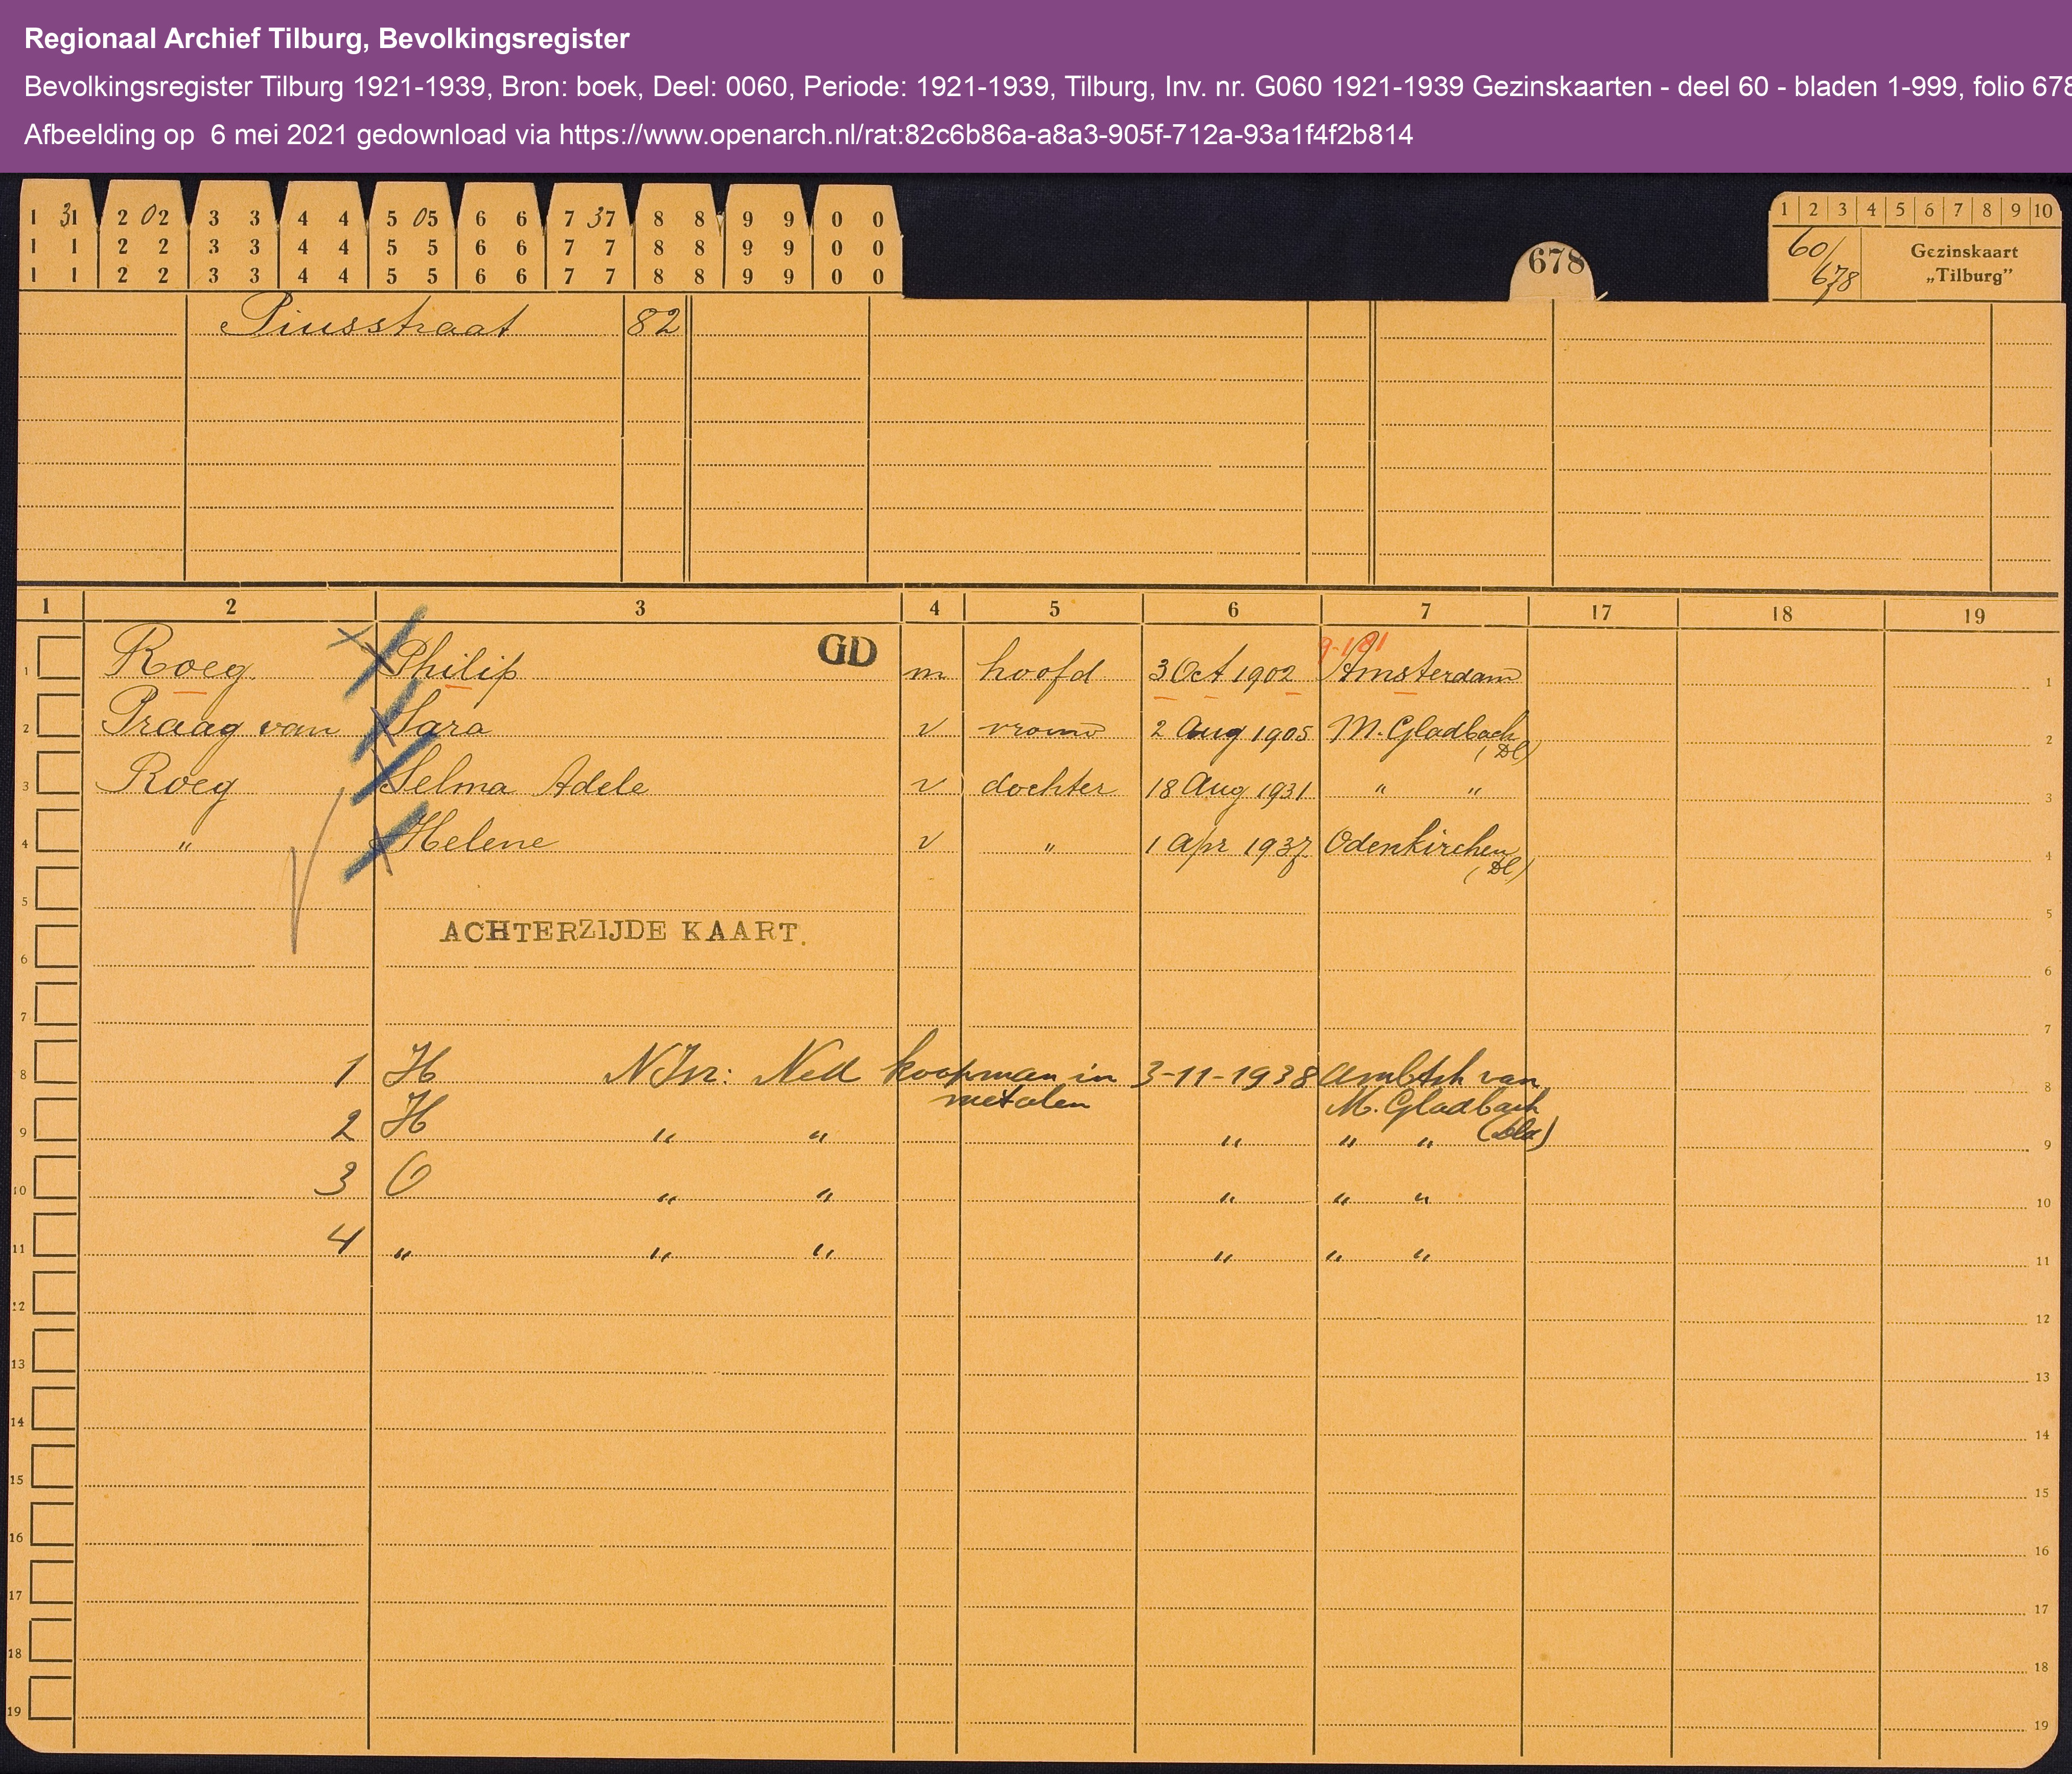 Regionaal Archief Tilburg, Bevolkingsregister
Bevolkingsregister Tilburg 1921-1939, Bron: boek, Deel: 0060, Periode: 1921-1939, Tilburg, Inv. nr. G060 1921-1939 Gezinskaarten - deel 60 - bladen 1-999, folio 678
Afbeelding op 6 mei 2021 gedownload via https://www.openarch.nl/rat:82c6b86a-a8a3-905f-712a-93a1f4f2b814
1 2 3 4 5 6 7 8 9 10
1 31 2 02 3 3 4 4 5 05 6 6 7 37 8 8 9 9 0 0
1 1 2 2 3 3 4 4 5 5 6 6 7 7 8 8 9 9 0 0
1 1 2 2 3 3 4 4 5 5 6 6 7 7 8 8 9 9 0 0
678
60/678
Gezinskaart
„Tilburg”
Piusstraat 82
1 2 3 4 5 6 7 17 18 19
GD
1 Roeg Philip m hoofd 3 Oct 1902 Amsterdam 1
2 Praag van Sara v vrouw 2 Aug 1905 M. Gladbach (Dl) 2
3 Roeg Selma Adele v dochter 18 Aug 1931 " " 3
4 " Helene v " 1 Apr 1937 Odenkirchen (Dl) 4
5 5
ACHTERZIJDE KAART.
6 6
7 7
8 1 H N Isr: Ned koopman in metalen 3-11-1938 Ambtsh van M. Gladbach (Dld) 8
9 2 H " " " " " 9
10 3 O " " " " " 10
11 4 " " " " " " 11
12 12
13 13
14 14
15 15
16 16
17 17
18 18
19 19